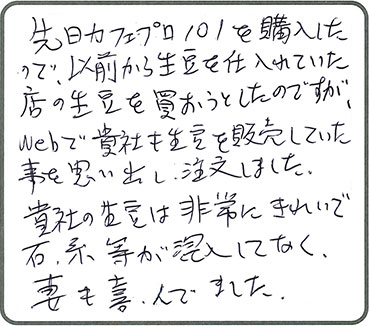 先日カフェプロ101を購入した
ので、以前から生豆を仕入れていた
店の生豆を買おうとしたのですが、
Webで貴社も生豆を販売していた
事を思い出し、注文しました。
貴社の生豆は非常にきれいで
石、糸等が混入してなく、
妻も喜んでました。